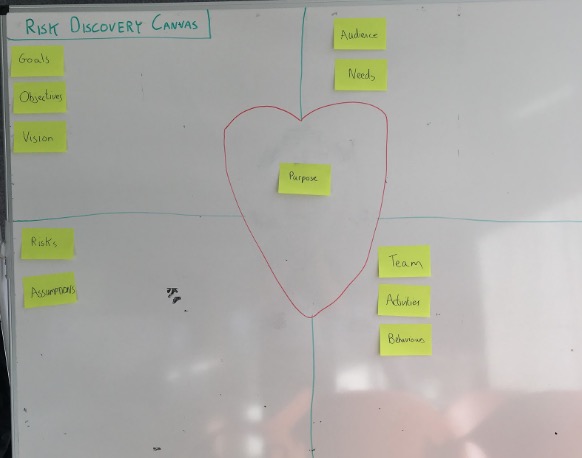 RISK DISCOVERY CANVAS
Goals
Objectives
Vision
Audience
Needs
Purpose
Risks
ASSUMPTIONS
Team
Activities
Behaviours